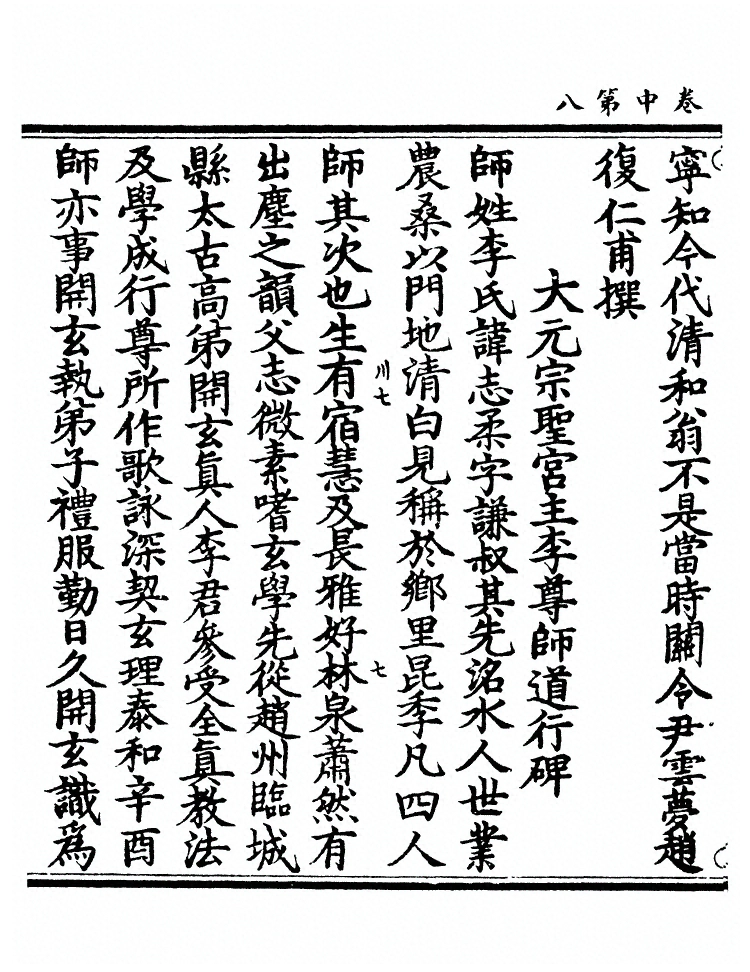 卷中第八
寧知今代清和翁不是當時關令尹雲夢趙
復仁甫撰
大元宗聖宮主李尊師道行碑
師姓李氏諱志柔字謙叔其先洺水人世業
農桑以門地清白見稱於鄉里昆季凡四人
川七
七
師其次也生有宿慧及長雅好林泉蕭然有
出塵之韻父志微素嗜玄學先從趙州臨城
縣太古高弟開玄眞人李君參受全眞教法
及學成行尊所作歌詠深契玄理泰和辛酉
師亦事開玄執弟子禮服勤日久開玄識爲